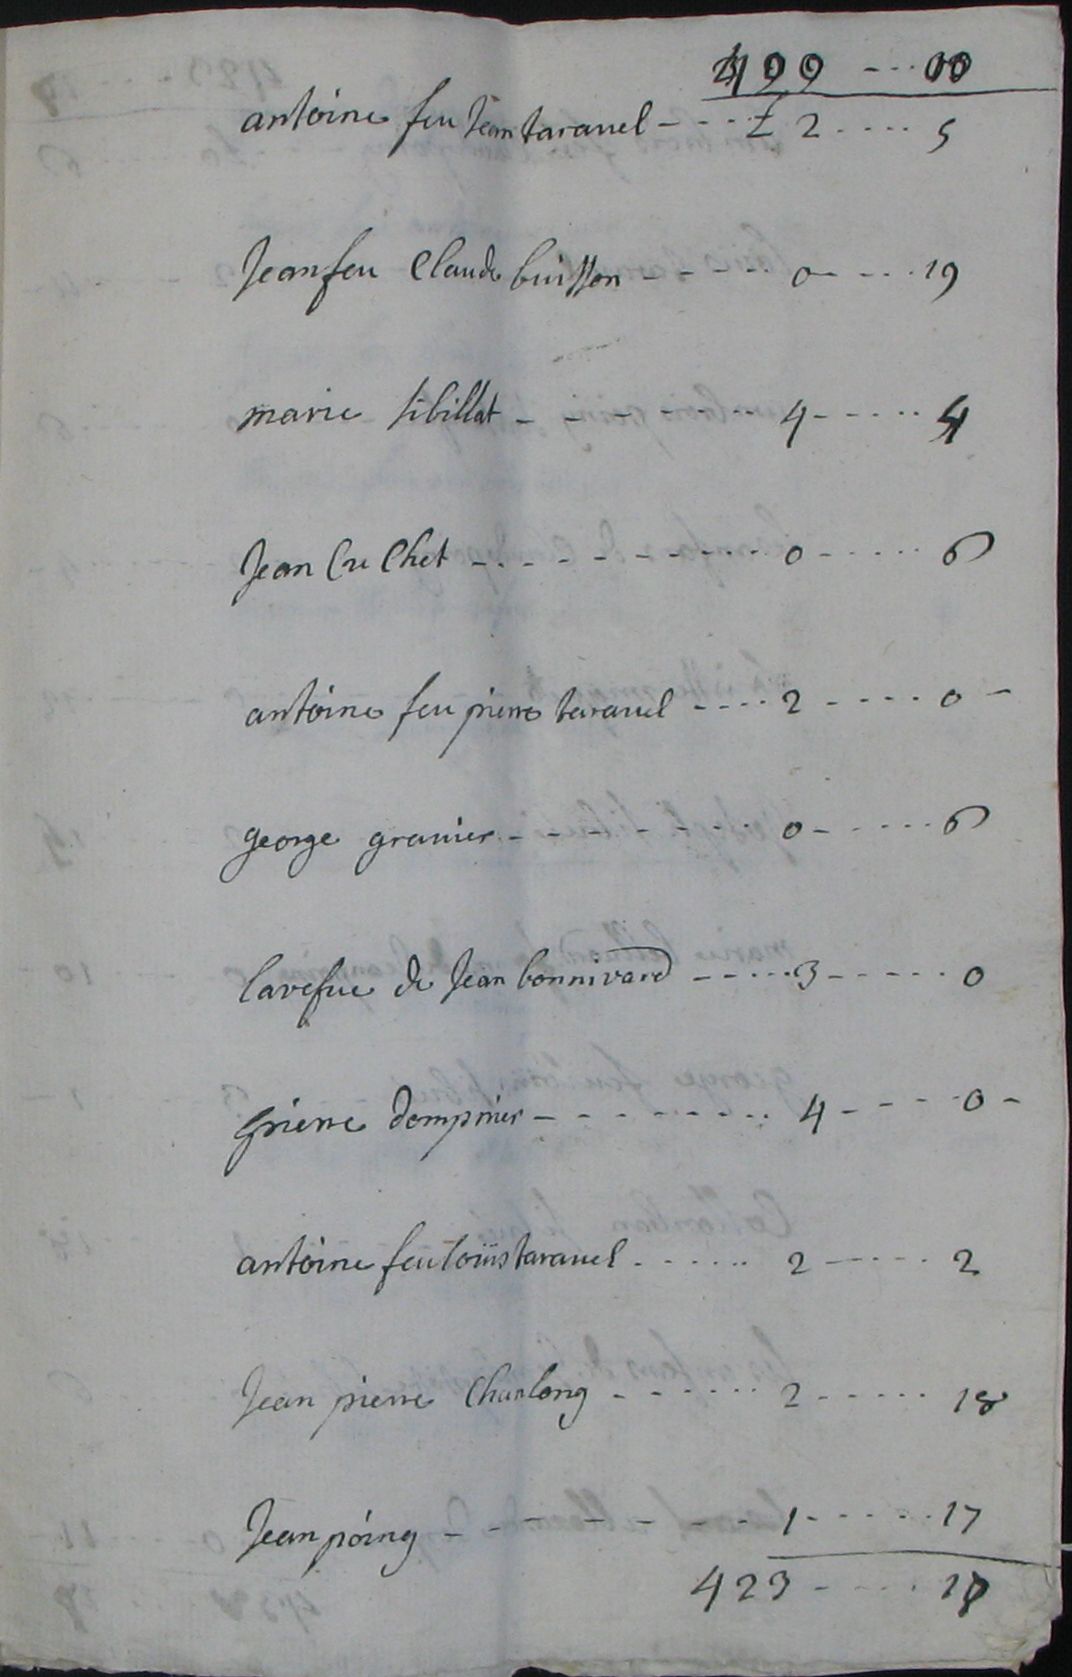 499 --- 00
antoine feu Jean taravel ---- £ 2 ---- 5
Jean feu Claude buisson ----- 0 ---- 19
marie sibillat -------- 4 ----- 4
Jean Cruchet -------- 0 ----- 6
antoine feu pierre taravel ---- 2 ---- 0 -
george granier -------- 0 ----- 6
la vefue de Jean bonnivard ----- 3 ----- 0
pierre dompnier -------- 4 ---- 0 -
antoine feu louïs taravel ------ 2 ---- 2
Jean pierre Charlong ------ 2 ----- 18
Jean poing -------- 1 ----- 17
423 ---- 18